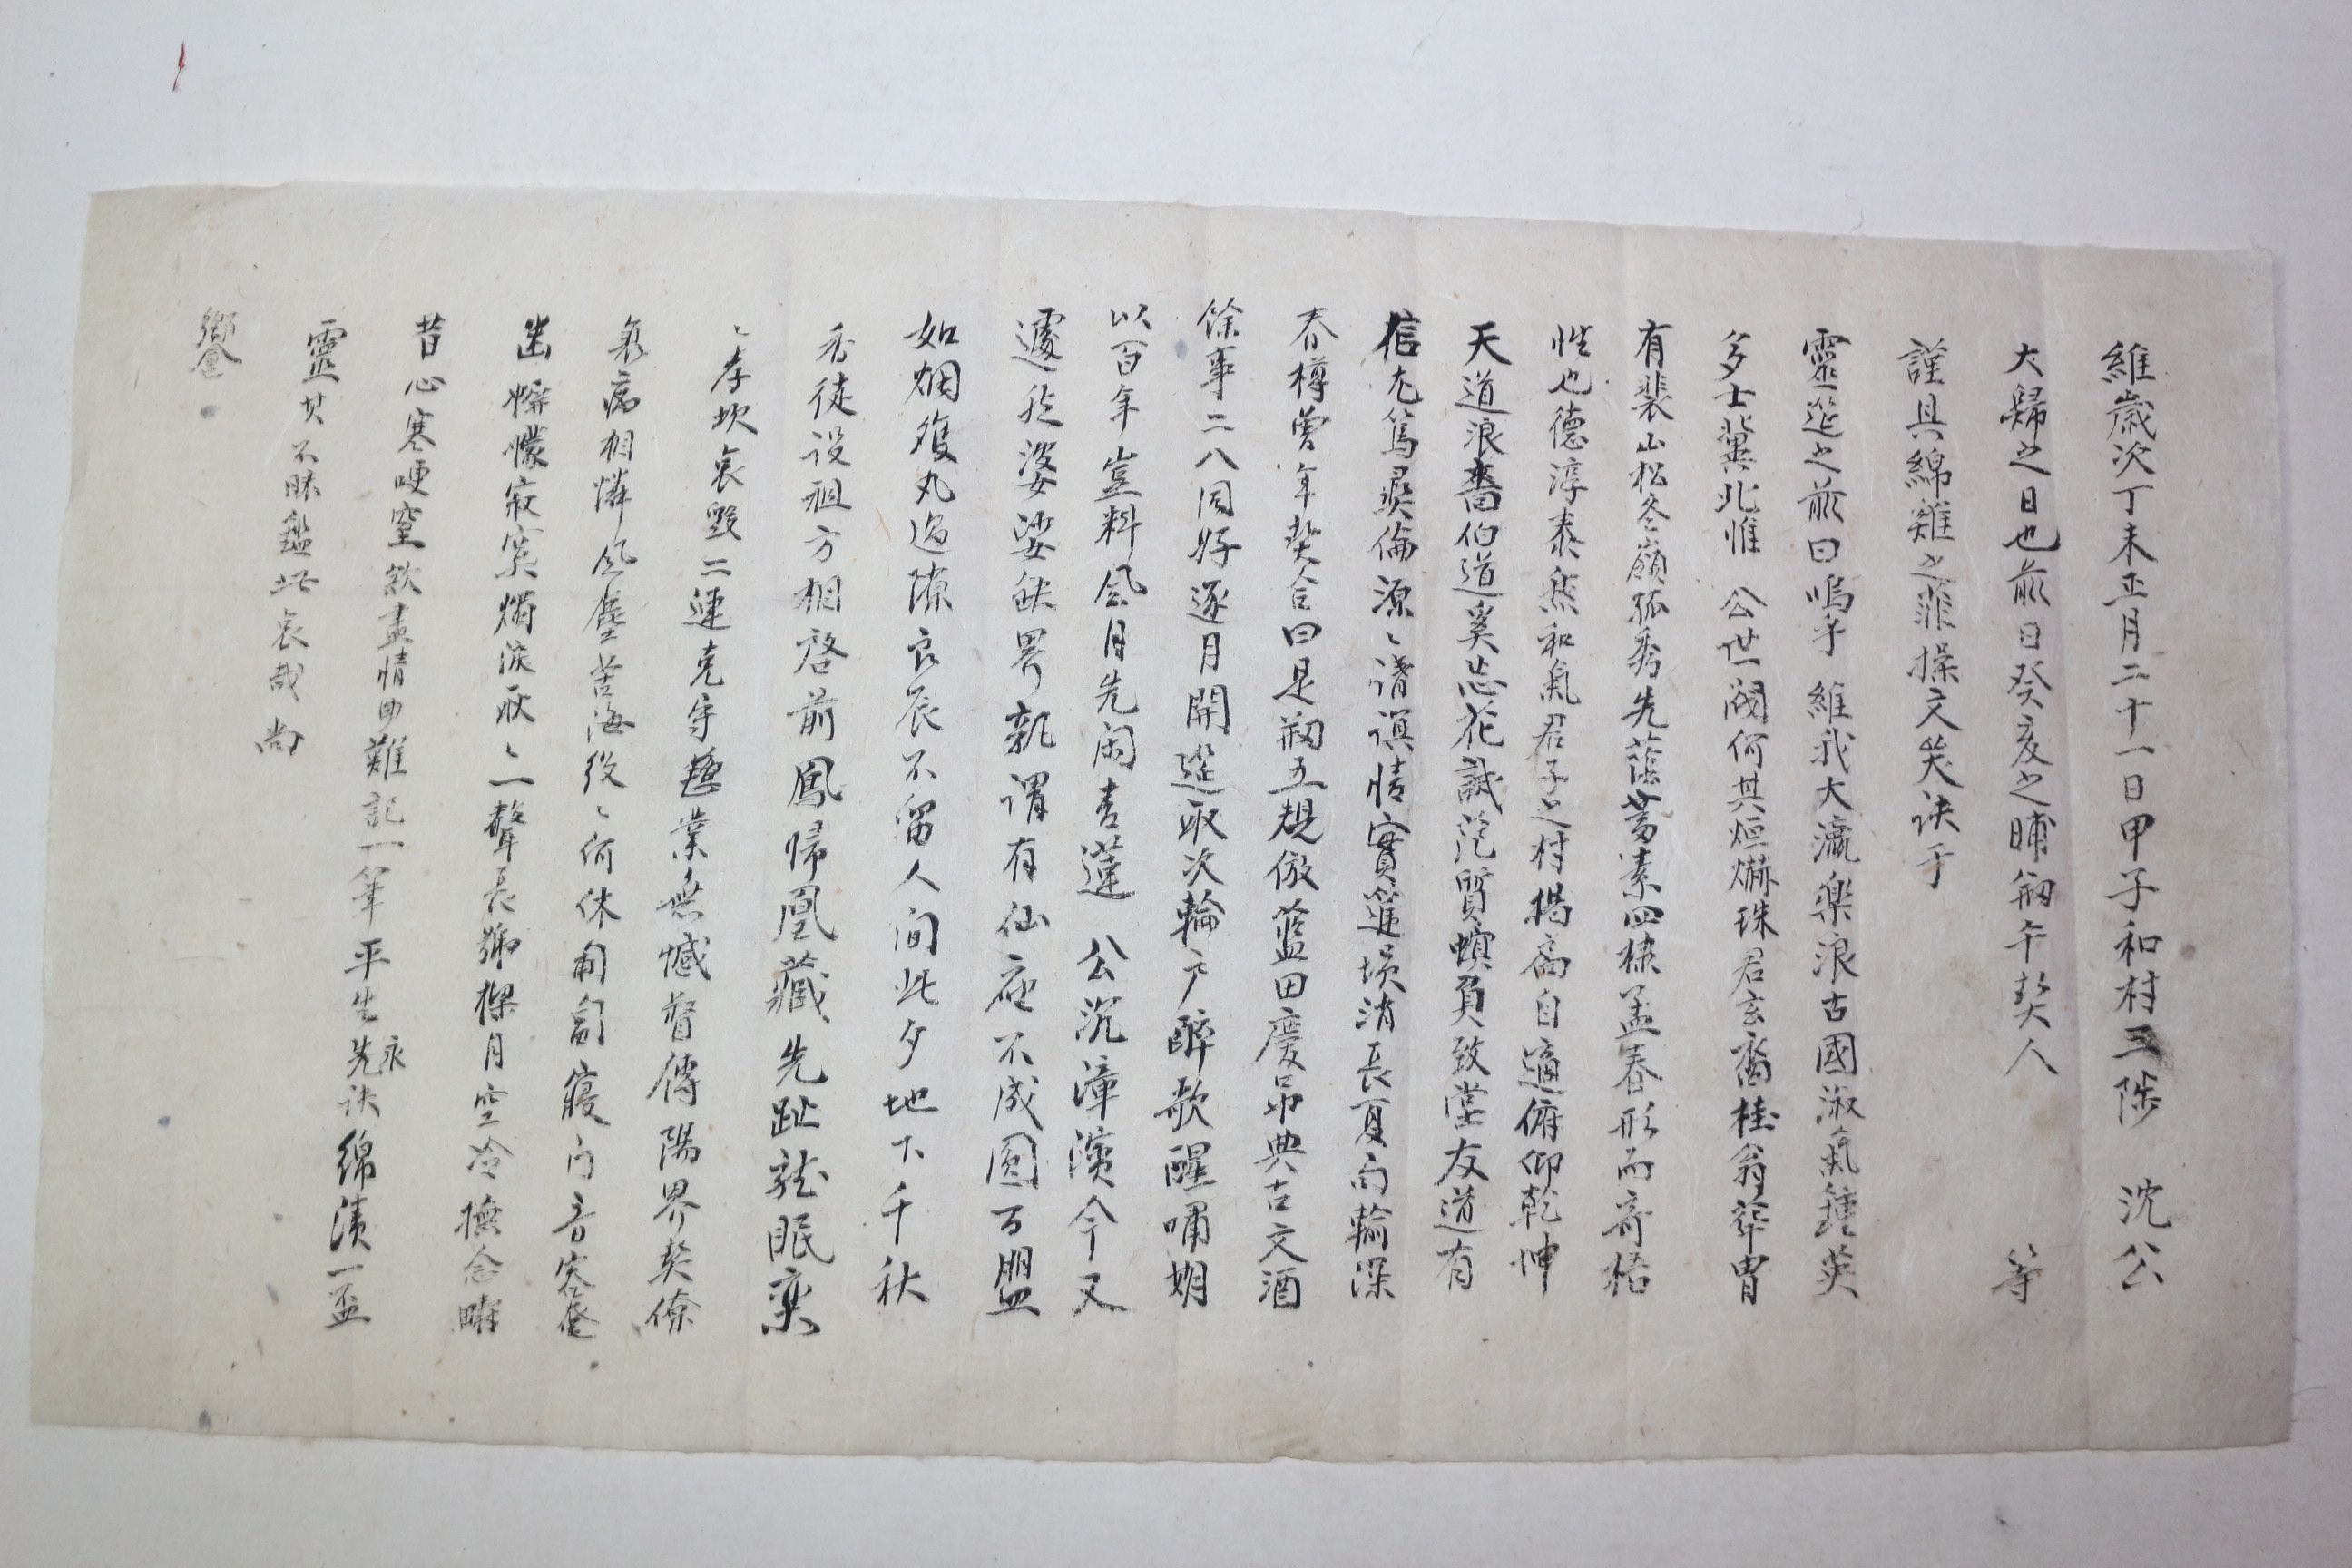 維歲次丁未五月二十一日甲子和村三陟 沈公
大歸之日也前日癸亥之晡硏午契人 等
謹具綿雞之菲操文哭訣于
靈筵之前曰嗚乎 維我大瀛樂浪古國淑氣鍾英
多士冀北惟 公世閥何其烜爀珠君玄裔桂翁華胄
有裴山松冬嶺孤秀先蔭蓄素四棣孟春形而奇梧
性也德淳泰然和氣君子之村揭高自適俯仰乾坤
天道浪嗇伯道奚忘花誠范質螟負致堂友道有
信尤篤彛倫源〻諸諶情實篪塤消長夏南輸深
春樽曾年契合曰是硏五規倣藍田慶昂典古文酒
餘事二八同好逐月開筵取次輪戶醉歌醒嘯期
以百年豈料風月先閑靑蓮 公沉漳濱今又
遽於婆娑缺界孰謂有仙應不成圓百盟
如烟雙丸過隙良辰不留人间此夕地下千秋
香徒设祖方相啓前鳳帰凰藏先趾龍眠欒
〻孝坎哀毀二連克守舊業無憾督傳陽界契僚
衰病相憐風塵苦海役〻何休匍匐寢门音容奄
幽幨幪寂寞燭淚耿〻一聲長號樑月空冷撫念疇
昔心寒哽窒欲盡情由難記一筆平生永訣綿漬一盃
靈其不昧鑑此哀哉尚
饗